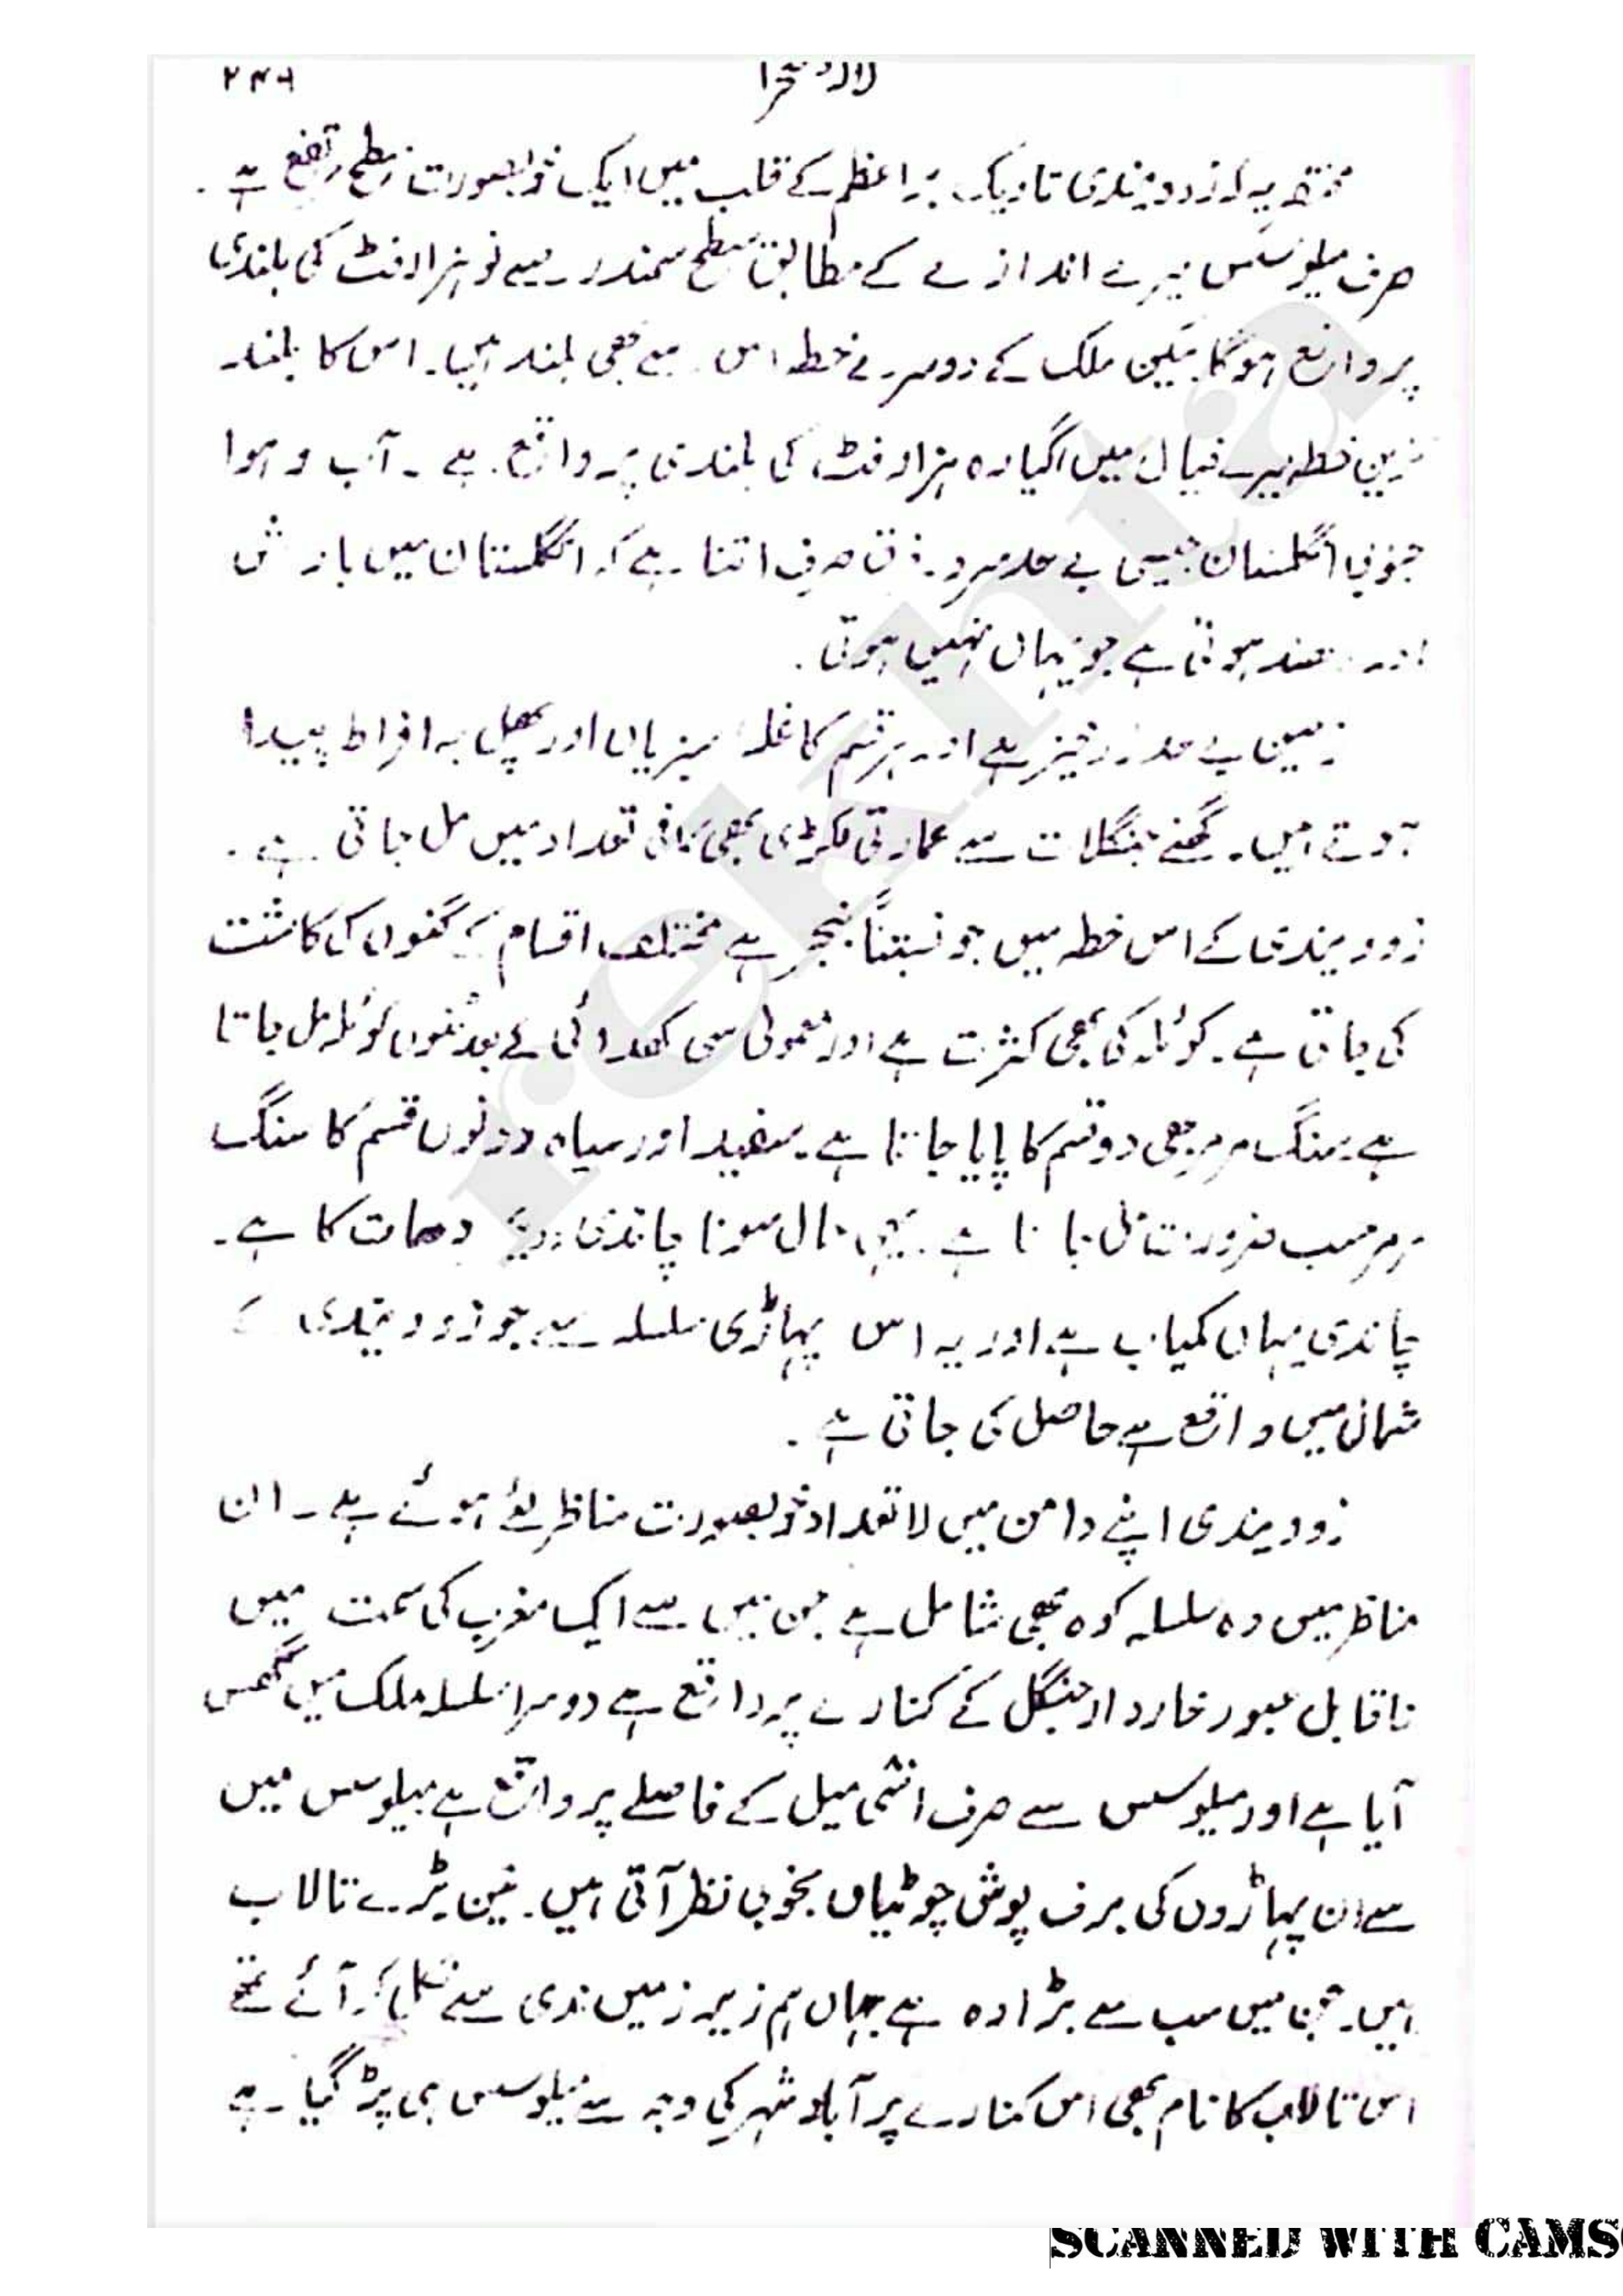 لالہ صحرا ۲۴۶
مختصر یہ کہ زوویندی تاریک براعظم کے قلب میں ایک خوبصورت سطح مرتفع ہے۔
صرف میلوسس میرے اندازے کے مطابق سطح سمندر سے نو ہزار فٹ کی بلندی
پر واقع ہوگا لیکن ملک کے دوسرے خطہ اس سے بھی بلند ہیں۔ اس کا بلند
ترین خطہ میرے خیال میں گیارہ ہزار فٹ کی بلندی پر واقع ہے۔ آب و ہوا
جنوبی انگلستان جیسی بے حد سرد۔ فرق صرف اتنا ہے کہ انگلستان میں بارش
اور دھند ہوتی ہے جو یہاں نہیں ہوتی۔
زمین بے حد زرخیز ہے اور ہر قسم کا غلہ سبزیاں اور پھل بہ افراط پیدا
ہوتے ہیں۔ گھنے جنگلات سے عمارتی لکڑی بھی کافی تعداد میں مل جاتی ہے۔
زوویندی کے اس خطہ میں جو نسبتاً بنجر ہے مختلف اقسام کے گنوں کی کاشت
کی جاتی ہے۔ کوئلہ کی بھی کثرت ہے اور معمولی سی کھدائی کے بعد منوں کوئلہ مل جاتا
ہے۔ سنگ مرمر بھی دو قسم کا پایا جاتا ہے۔ سفید اور سیاہ دونوں قسم کا سنگ
مرمر حسب ضرورت مل جاتا ہے۔ یہی حال سونا چاندی دھات کا ہے۔
چاندی یہاں کمیاب ہے اور یہ اس پہاڑی سلسلہ سے جو زوویندی کے
شمال میں واقع ہے حاصل کی جاتی ہے۔
زوویندی اپنے دامن میں لاتعداد خوبصورت مناظر لئے ہوئے ہے۔ ان
مناظر میں وہ سلسلہ کوہ بھی شامل ہے جن میں سے ایک مغرب کی سمت میں
ناقابل عبور خاردار جنگل کے کنارے پر واقع ہے دوسرا سلسلہ ملک میں گھس
آیا ہے اور میلوسس سے صرف اسّی میل کے فاصلے پر واقع ہے میلوسس میں
سے ان پہاڑوں کی برف پوش چوٹیاں بخوبی نظر آتی ہیں۔ تین بڑے تالاب
ہیں۔ جن میں سب سے بڑا وہ ہے جہاں ہم زیر زمین ندی سے نکل کر آئے تھے
اس تالاب کا نام بھی اس کنارے پر آباد شہر کی وجہ سے میلوسس ہی پڑ گیا ہے
SCANNED WITH CAMS